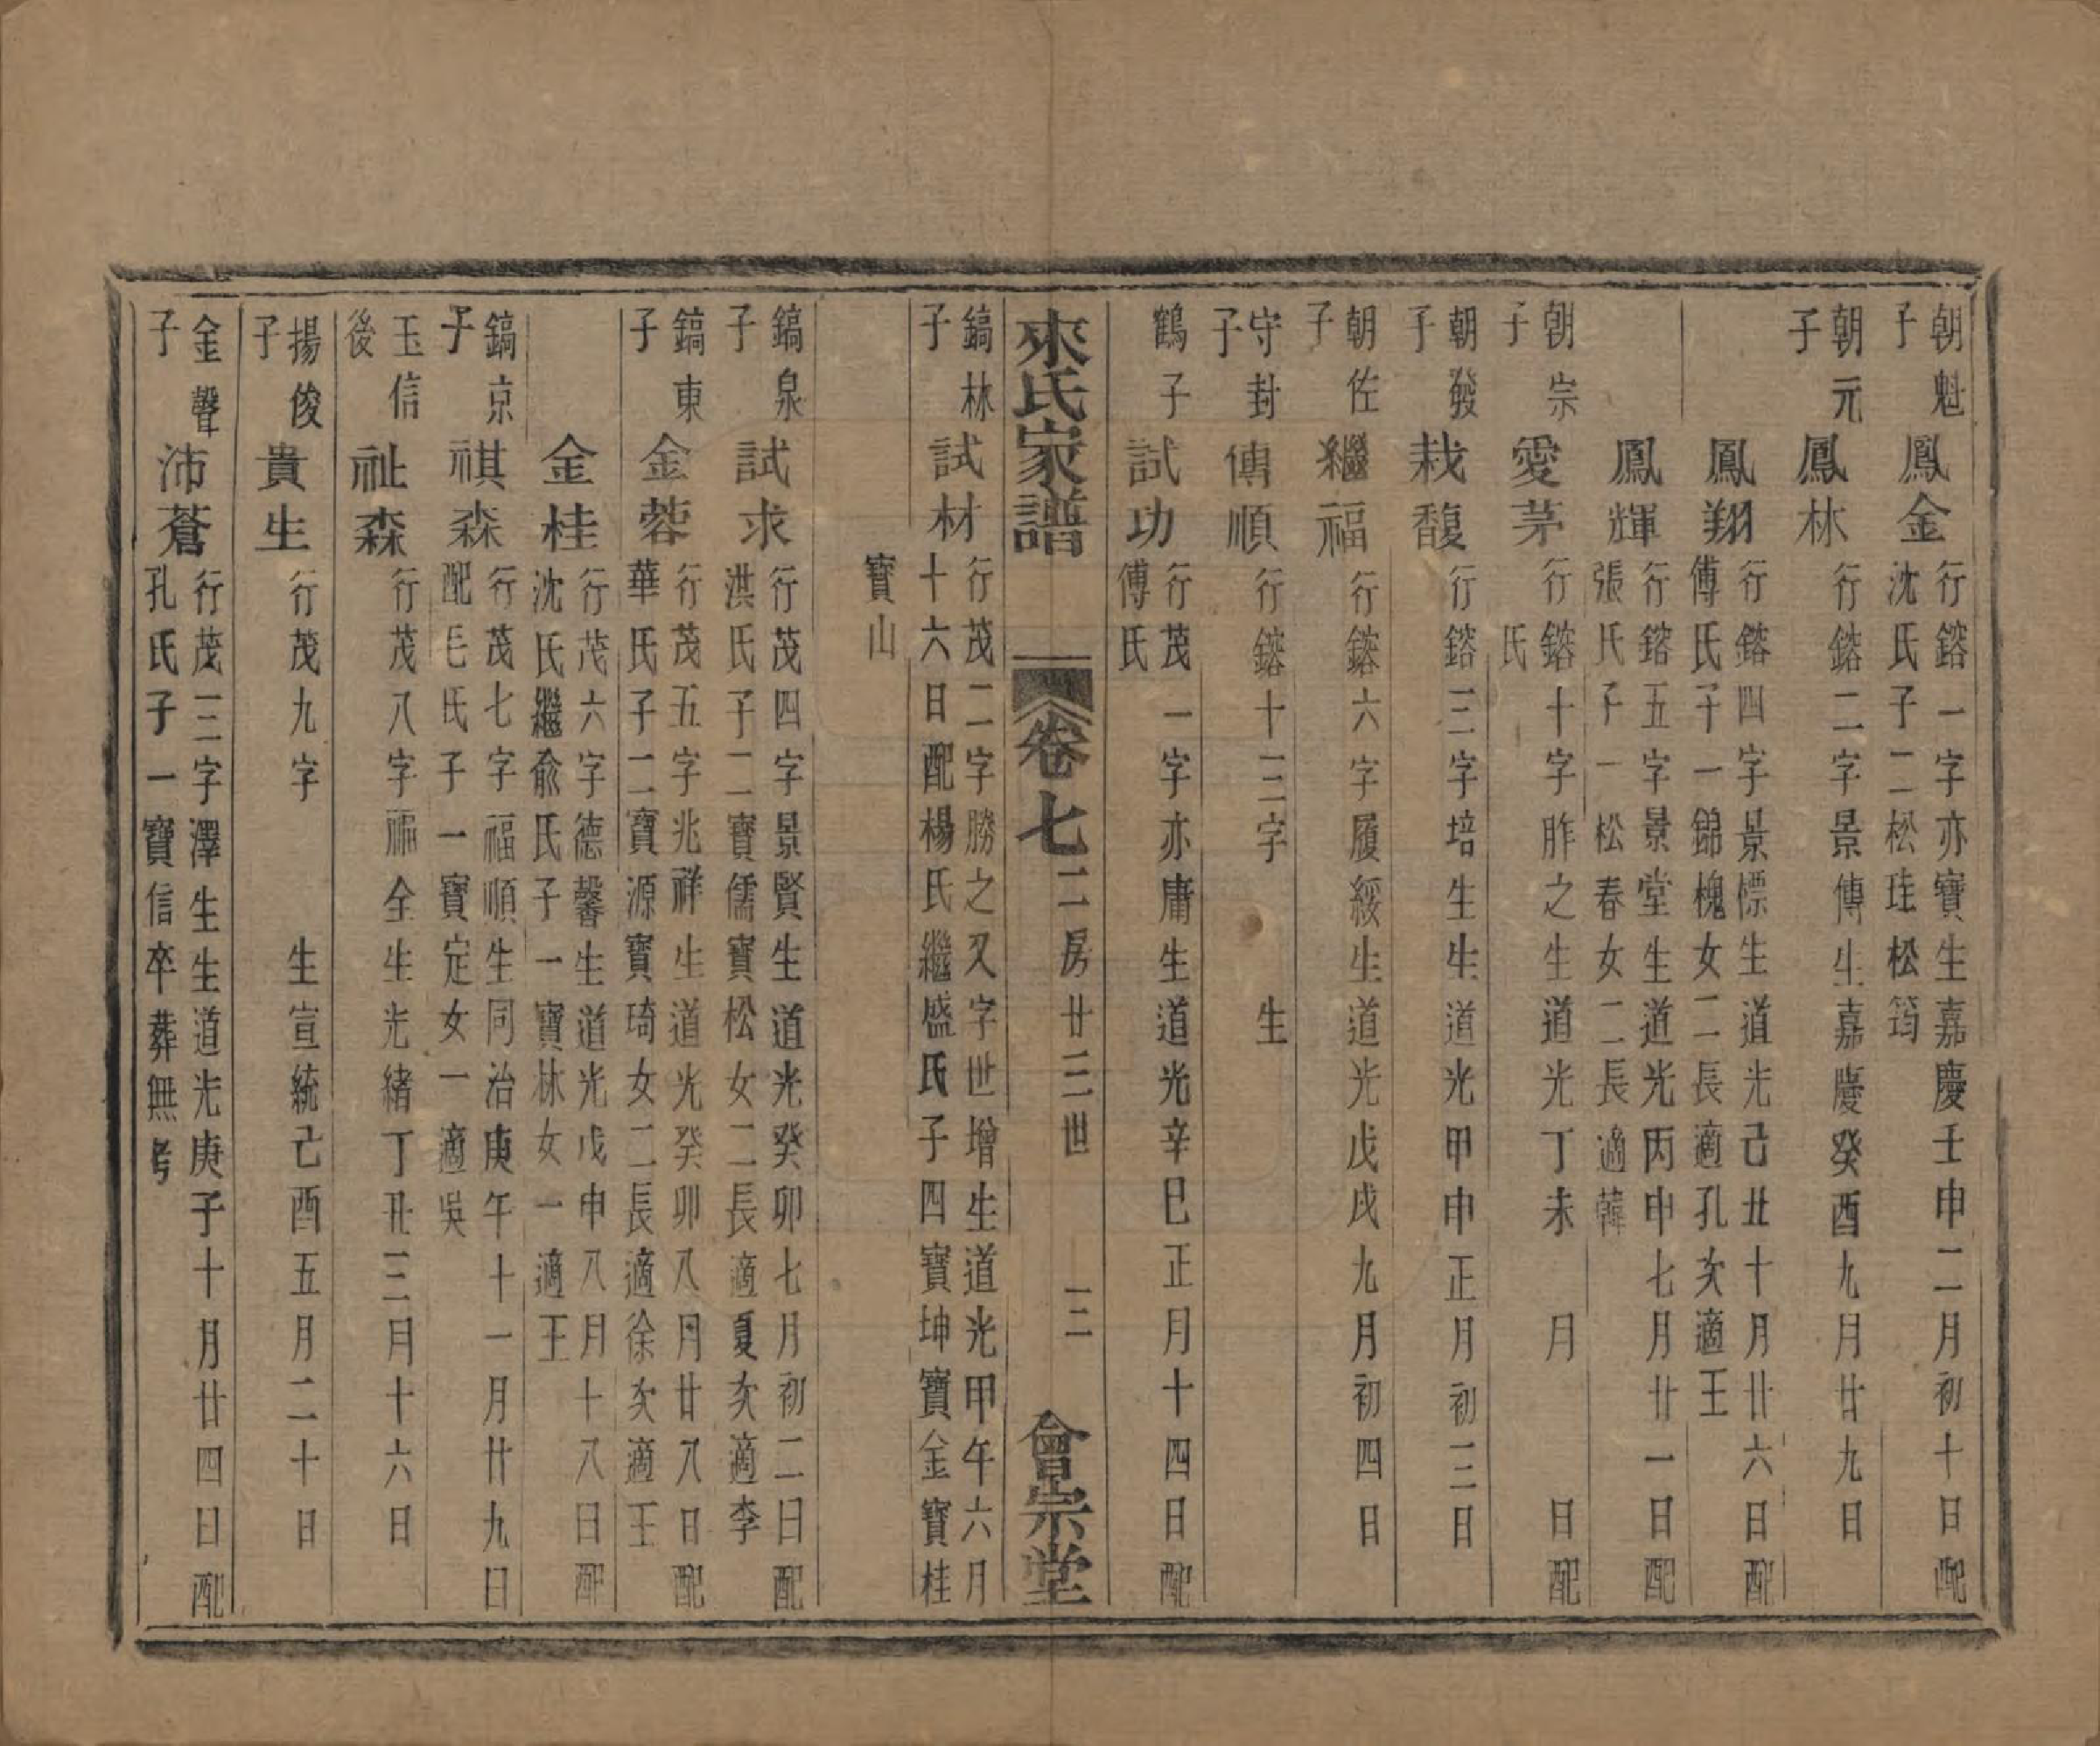 朝魁子
鳳金
行鎔一字亦寶生嘉慶壬申二月初十日配
沈氏子二松珪松筠
朝元子
鳳林
行鎔二字景傳生嘉慶癸酉九月廿九日
鳳翔
行鎔四字景慓生道光己丑十月廿六日配
傅氏子一錦槐女二長適孔次適王
鳳輝
行鎔五字景堂生道光丙申七月廿一日配
張氏子一松春女二長適韓
朝宗子
愛茅
行鎔十字胙之生道光丁未 月 日配
氏
朝發子
栽馥
行鎔三字培生生道光甲申正月初三日
朝佐子
繼福
行鎔六字履綏生道光戊戌九月初四日
守封子
傳順
行鎔十三字 生
鶴子
試功
行茂一字亦庸生道光辛巳正月十四日配
傅氏
來氏家譜 卷七 二房廿三世 三 會宗堂
鎬林子
試材
行茂二字勝之又字世增生道光甲午六月
十六日配楊氏繼盛氏子四寶坤寶金寶桂
寶山
鎬泉子
試求
行茂四字景賢生道光癸卯七月初二日配
洪氏子二寶儒寶松女二長適夏次適李
鎬東子
金蓉
行茂五字兆祥生道光癸卯八月廿八日配
華氏子二寶源寶琦女二長適徐次適王
金桂
行茂六字德馨生道光戊申八月十八日配
沈氏繼俞氏子一寶林女一適王
鎬京子
祺森
行茂七字福順生同治庚午十一月廿九日
配毛氏子一寶定女一適吳
玉信後
祉森
行茂八字福全生光緒丁丑三月十六日
揚俊子
貴生
行茂九字 生宣統己酉五月二十日
金聲子
沛蒼
行茂三字澤生生道光庚子十月廿四日配
孔氏子一寶信卒葬無考